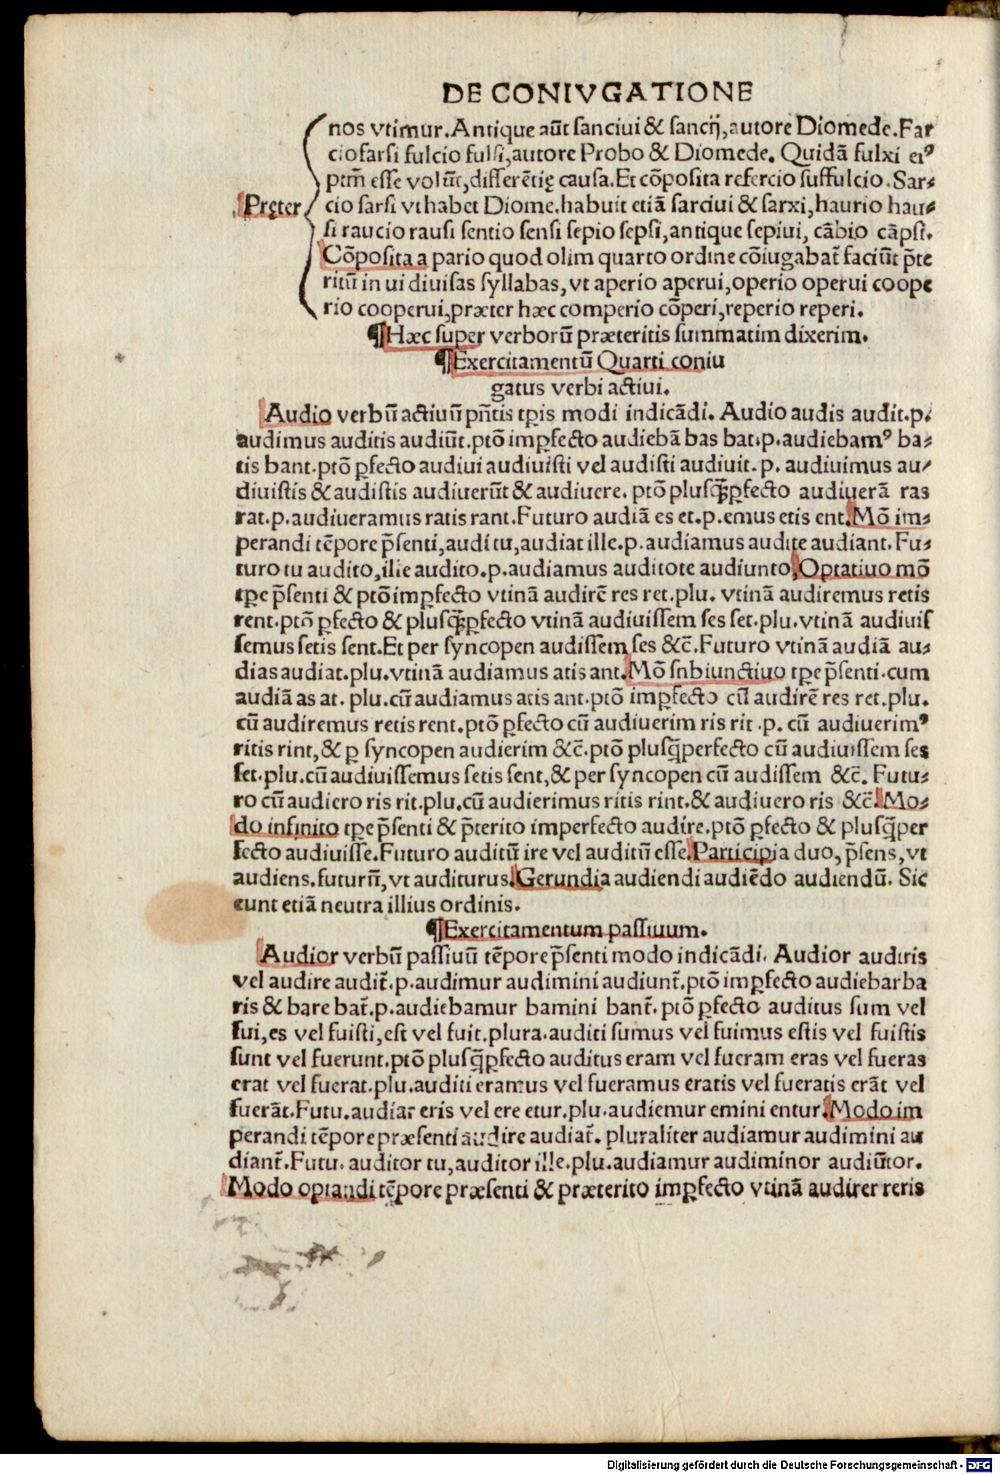 DE CONIVGATIONE
nos vtimur. Antique aūt sanciui & sancij, autore Diomede. Far
cio farsi fulcio fulsi, autore Probo & Diomede. Quidā fulxi ei⁹
ptm̄ esse volūt, differētię causa. Et cōposita refercio suffulcio. Sar-
Pręter
cio sarsi vt habet Diome. habuit etiā sarciui & sarxi, haurio hau-
si raucio rausi sentio sensi sepio sepsi, antique sepiui, cābio cāpsi.
Cōposita a pario quod olim quarto ordine cōiugabat̄ faciūt p̄te
ritū in ui diuisas syllabas, vt aperio aperui, operio operui coope
rio cooperui, præter hæc comperio cōperi, reperio reperi.
¶Hæc super verborū præteritis summatim dixerim.
¶Exercitamentū Quarti coniu
gatus verbi actiui.
Audio verbū actiuū pn̄tis tꝑis modi indicādi. Audio audis audit. p.
audimus auditis audiūt. ptō imꝑfecto audiebā bas bat. p. audiebam⁹ ba-
tis bant. ptō ꝑfecto audiui audiuisti vel audisti audiuit. p. audiuimus au-
diuistis & audistis audiuerūt & audiuere. ptō plusq̄ꝑfecto audiuerā ras
rat. p. audiueramus ratis rant. Futuro audiā es et. p. emus etis ent. Mō im-
perandi tēpore p̄senti, audi tu, audiat ille. p. audiamus audite audiant. Fu-
turo tu audito, ille audito. p. audiamus auditote audiunto, Optatiuo mō
tꝑe p̄senti & ptō imꝑfecto vtinā audirē res ret. plu. vtinā audiremus retis
rent. ptō ꝑfecto & plusq̄ꝑfecto vtinā audiuissem ses set. plu. vtinā audiuis
semus setis sent. Et per syncopen audissem ses &c̄. Futuro vtinā audiā au-
dias audiat. plu. vtinā audiamus atis ant. Mō snbiunctiuo tꝑe p̄senti. cum
audiā as at. plu. cū audiamus atis ant. ptō imꝑfecto cū audirē res ret. plu.
cū audiremus retis rent. ptō ꝑfecto cū audiuerim ris rit . p. cū audiuerim⁹
ritis rint, & ꝑ syncopen audierim &c̄. ptō plusq̄perfecto cū audiuissem ses
set. plu. cū audiuissemus setis sent, & per syncopen cū audissem &c̄. Futu-
ro cū audiero ris rit. plu. cū audierimus ritis rint. & audiuero ris &c̄. Mo-
do infinito tꝑe p̄senti & p̄terito imperfecto audire. ptō ꝑfecto & plusq̄per
fecto audiuisse. Futuro auditū ire vel auditū esse. Participia duo, p̄sens, vt
audiens. futurū, vt auditurus. Gerundia audiendi audiēdo audiendū. Sic
eunt etiā neutra illius ordinis.
¶Exercitamentum passiuum.
Audior verbū passiuū tēpore p̄senti modo indicādi. Audior audiris
vel audire audit̄. p. audimur audimini audiunt̄. ptō imꝑfecto audiebar ba
ris & bare bat̄. p. audiebamur bamini bant̄. ptō ꝑfecto auditus sum vel
fui, es vel fuisti, est vel fuit. plura. auditi sumus vel fuimus estis vel fuistis
sunt vel fuerunt. ptō plusq̄ꝑfecto auditus eram vel fueram eras vel fueras
erat vel fuerat. plu. auditi eramus vel fueramus eratis vel fueratis erāt vel
fuerāt. Futu. audiar eris vel ere etur. plu. audiemur emini entur. Modo im
perandi tēpore præsenti audire audiat̄. pluraliter audiamur audimini au
diant̄. Futu. auditor tu, auditor ille. plu. audiamur audiminor audiūtor.
Modo optandi tēpore præsenti & præterito imꝑfecto vtinā audirer reris
Digitalisierung gefördert durch die Deutsche Forschungsgemeinschaft - DFG